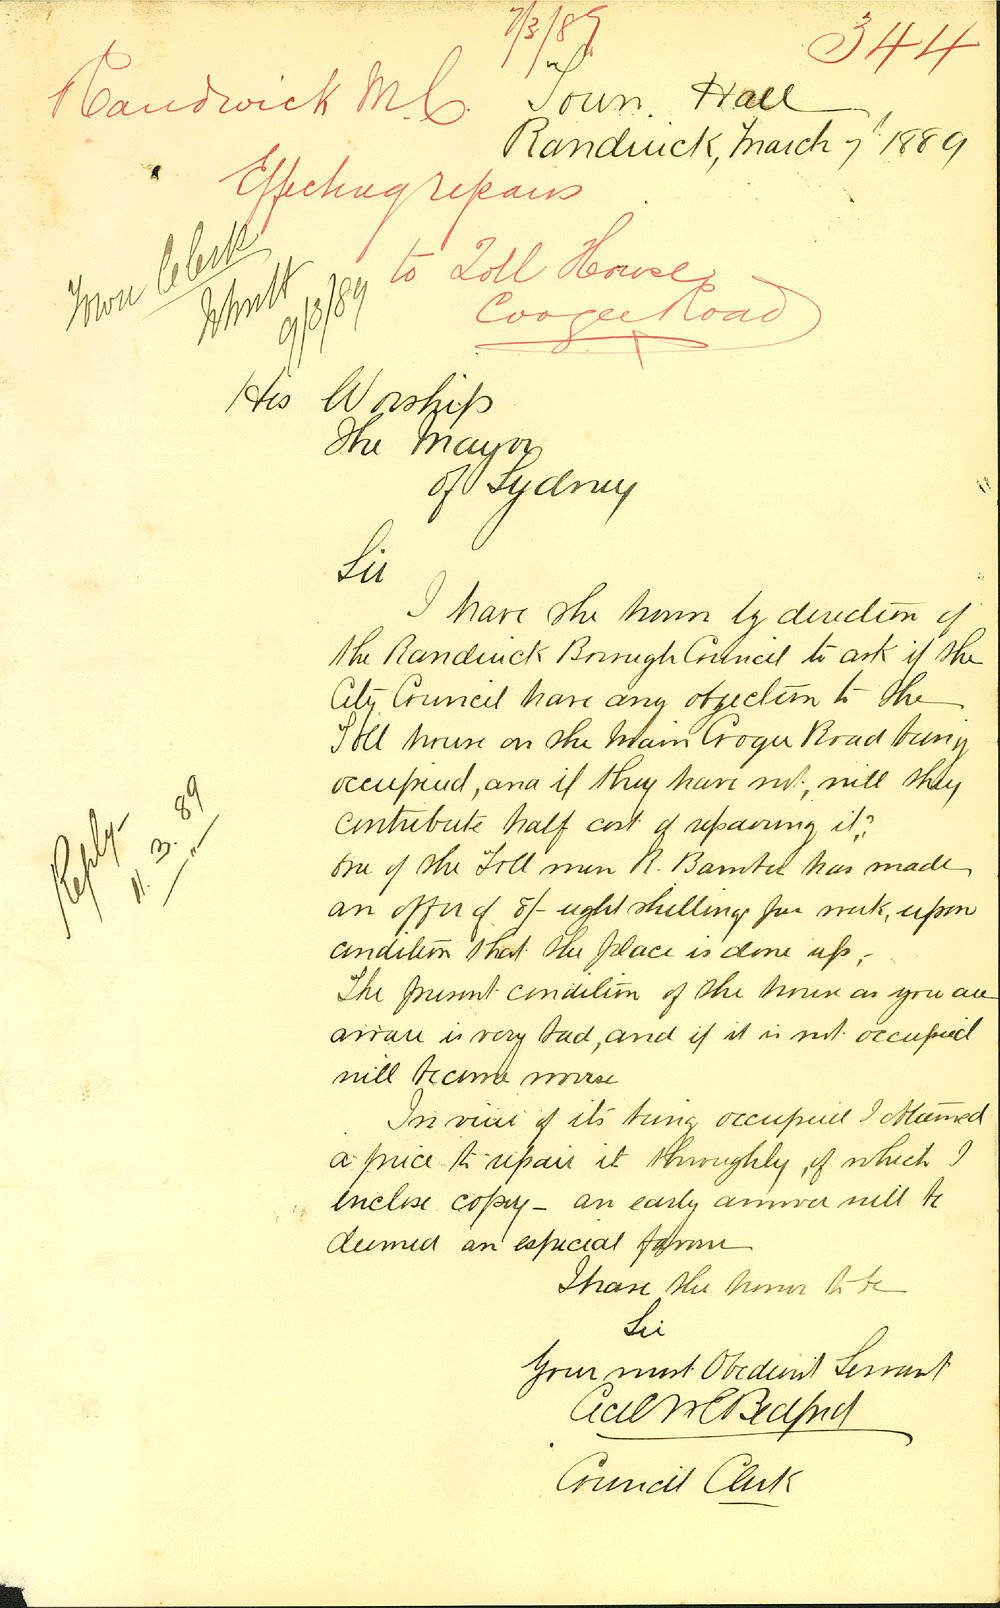 7/3/89
344
Randwick M.C.
Town Hall
Randwick, March 7th 1889
Effecting repairs
to Toll House
Coogee Road
Town Clerk
9/3/89
His Worship
The Mayor
of Sydney
Sir
I have the honor by direction of
the Randwick Borough Council to ask if the
City Council have any objection to the
Toll house on the Main Coogee Road being
occupied, and if they have not, will they
contribute half cost of repairing it?
One of the Toll men R. has made
an offer of 8/- eight shillings per week, upon
condition that the place is done up,
The present condition of the house as you are
aware is very bad, and if it is not occupied
will become worse
In view of its being occupied I obtained
a price to repair it thoroughly, of which I
enclose copy – an early answer will be
deemed an especial favour
I have the honor to be
Sir
Your most Obedient Servant
Bedford
Council Clerk
Reply
11.3.89